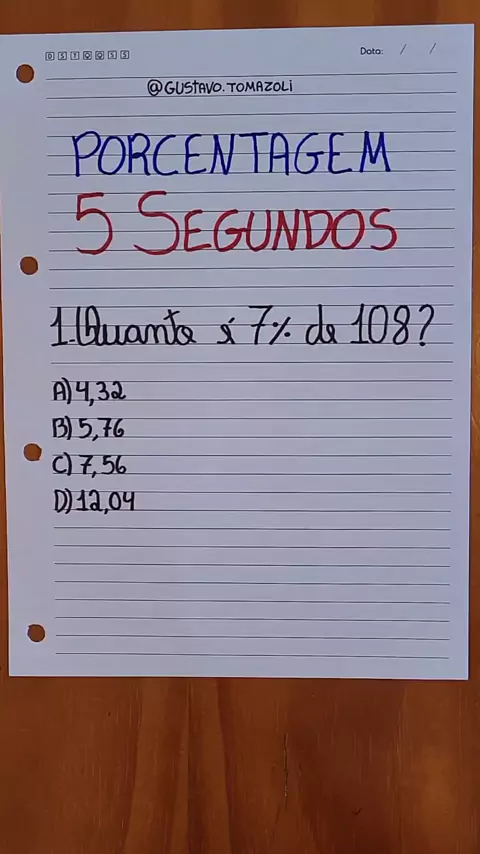 D S T Q Q S S
Data: / /
@GUSTAVO.TOMAZOLI
PORCENTAGEM
5 SEGUNDOS
1. Quanto é 7% de 108?
A) 4,32
B) 5,76
C) 7,56
D) 12,04